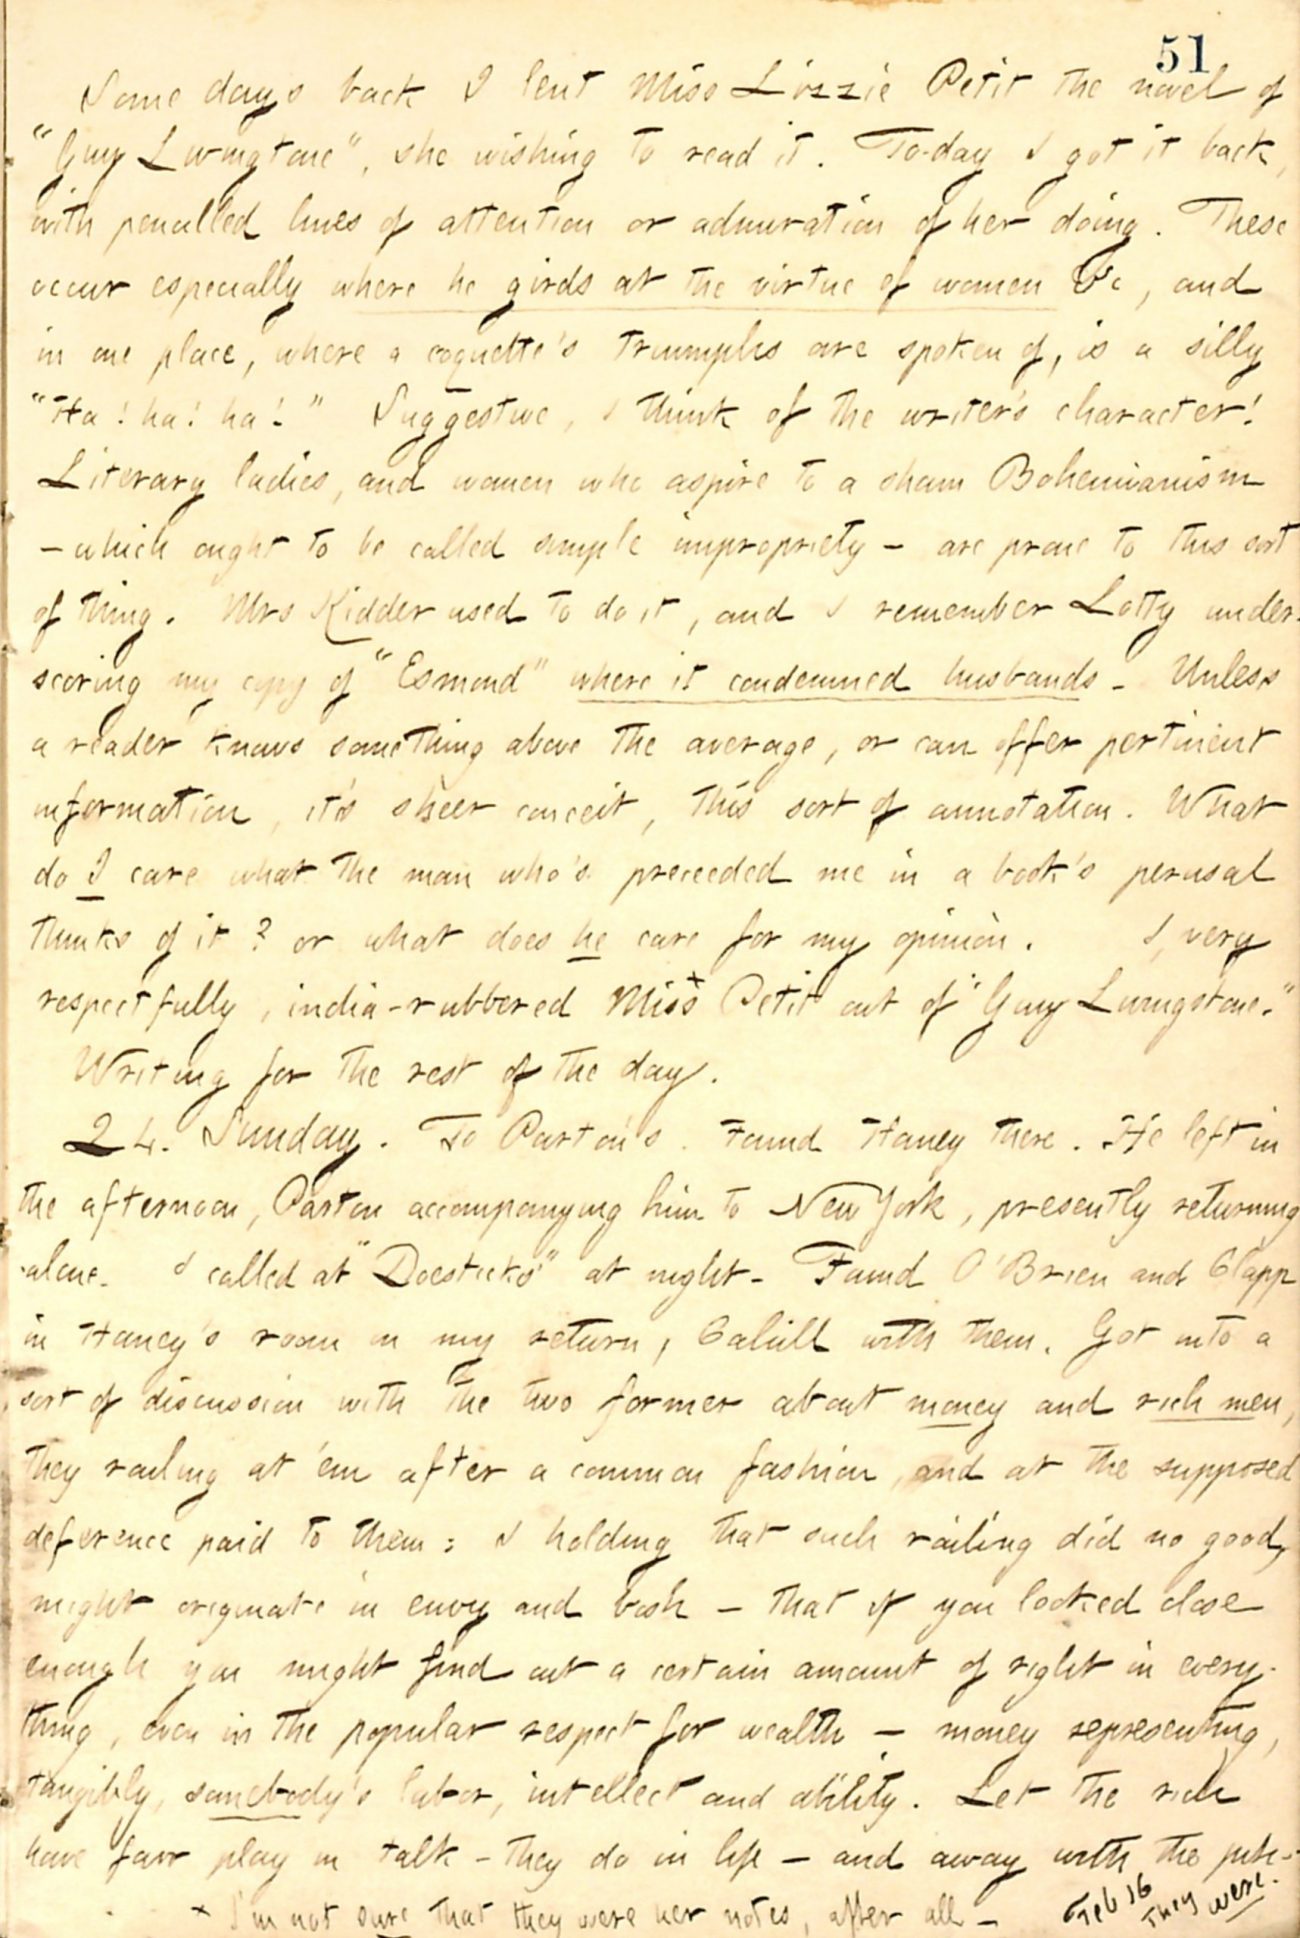 51
Some days back I lent Miss Lizzie Petit the novel of
"Guy Livingstone", she wishing to read it. To-day I got it back,
with pencilled lines of attention or admiration of her doing. These
occur especially where he girds at the virtue of women &c, and
in one place, where a coquette's triumphs are spoken of, is a silly
"Ha! ha! ha!" Suggestive, I think of the writer's character!
Literary ladies, and women who aspire to a sham Bohemianism
— which ought to be called simple impropriety — are prone to this sort
of thing. Mrs Kidder used to do it, and I remember Lotty under-
scoring my copy of "Esmond" where it condemned husbands. Unless
a reader knows something above the average, or can offer pertinent
information, it's sheer conceit, this sort of annotation. What
do I care what the man who's preceeded me in a book's perusal
thinks of it? or what does he care for my opinion. I, very
respectfully, india-rubbered Miss x Petit out of "Guy Livingstone."
Writing for the rest of the day.
24. Sunday. To Parton's. Found Haney there. He left in
the afternoon, Parton accompanying him to New York, presently returning
alone. I called at "Doesticks" at night. Found O'Brien and Clapp
in Haney's room on my return, Cahill with them. Got into a
sort of discussion with the two former about money and rich men,
they railing at 'em after a common fashion, and at the supposed
deference paid to them: I holding that such railing did no good,
might originate in envy and bosh — that if you looked close
enough you might find out a certain amount of right in every-
thing, even in the popular respect for wealth — money representing,
tangibly, somebody's labor, intellect and ability. Let the rich
have fair play in talk — they do in life — and away with the
x I'm not sure that they were her notes, after all — Feb 16
They were.